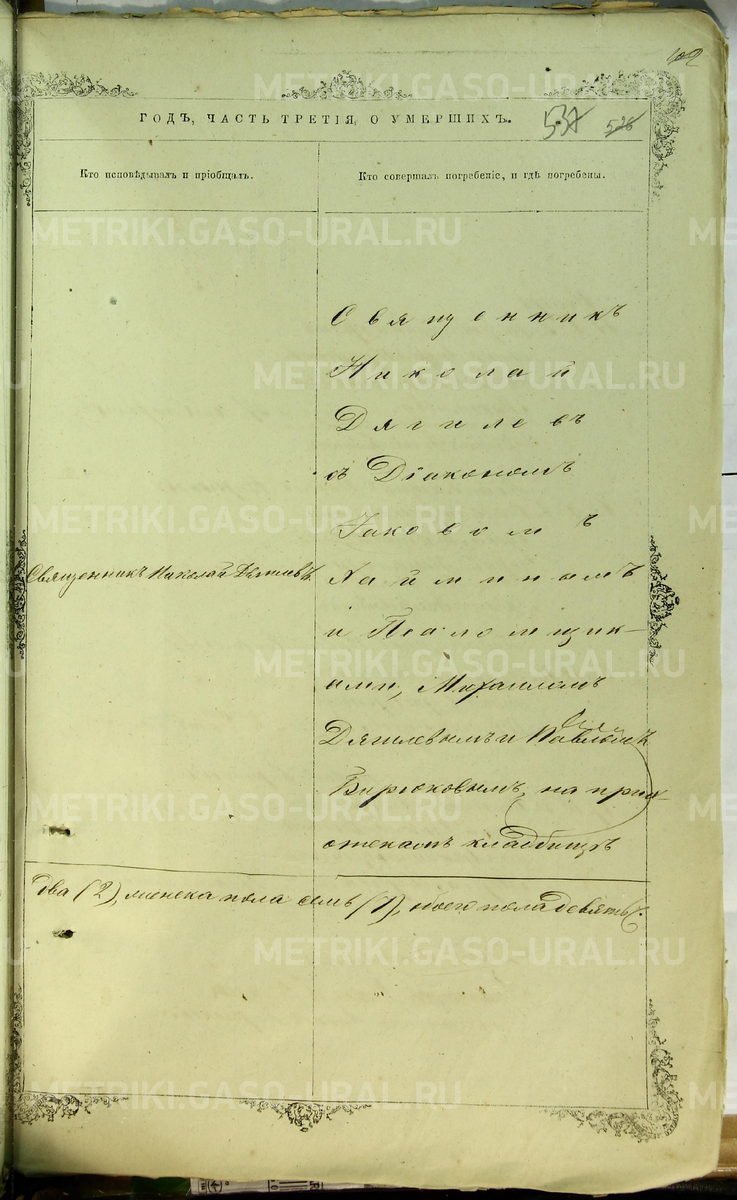 402
ГОДЪ, ЧАСТЬ ТРЕТІЯ, О УМЕРШИХЪ.
537 526
Кто исповѣдывалъ и пріобщалъ.
Кто совершалъ погребеніе, и гдѣ погребены.
METRIKI.GASO-URAL.RU
Священникъ
Николай
Дягилевъ
съ Діакономъ
Іаковомъ
Священникъ Николай Дягилевъ.
Хайминымъ
и Псаломщик-
ами, Михаиломъ
Дягилевымъ и Павломъ
Бирюковымъ, на прих-
отскомъ кладбищѣ
два (2), женска пола семь (7), обоего пола девять (9).